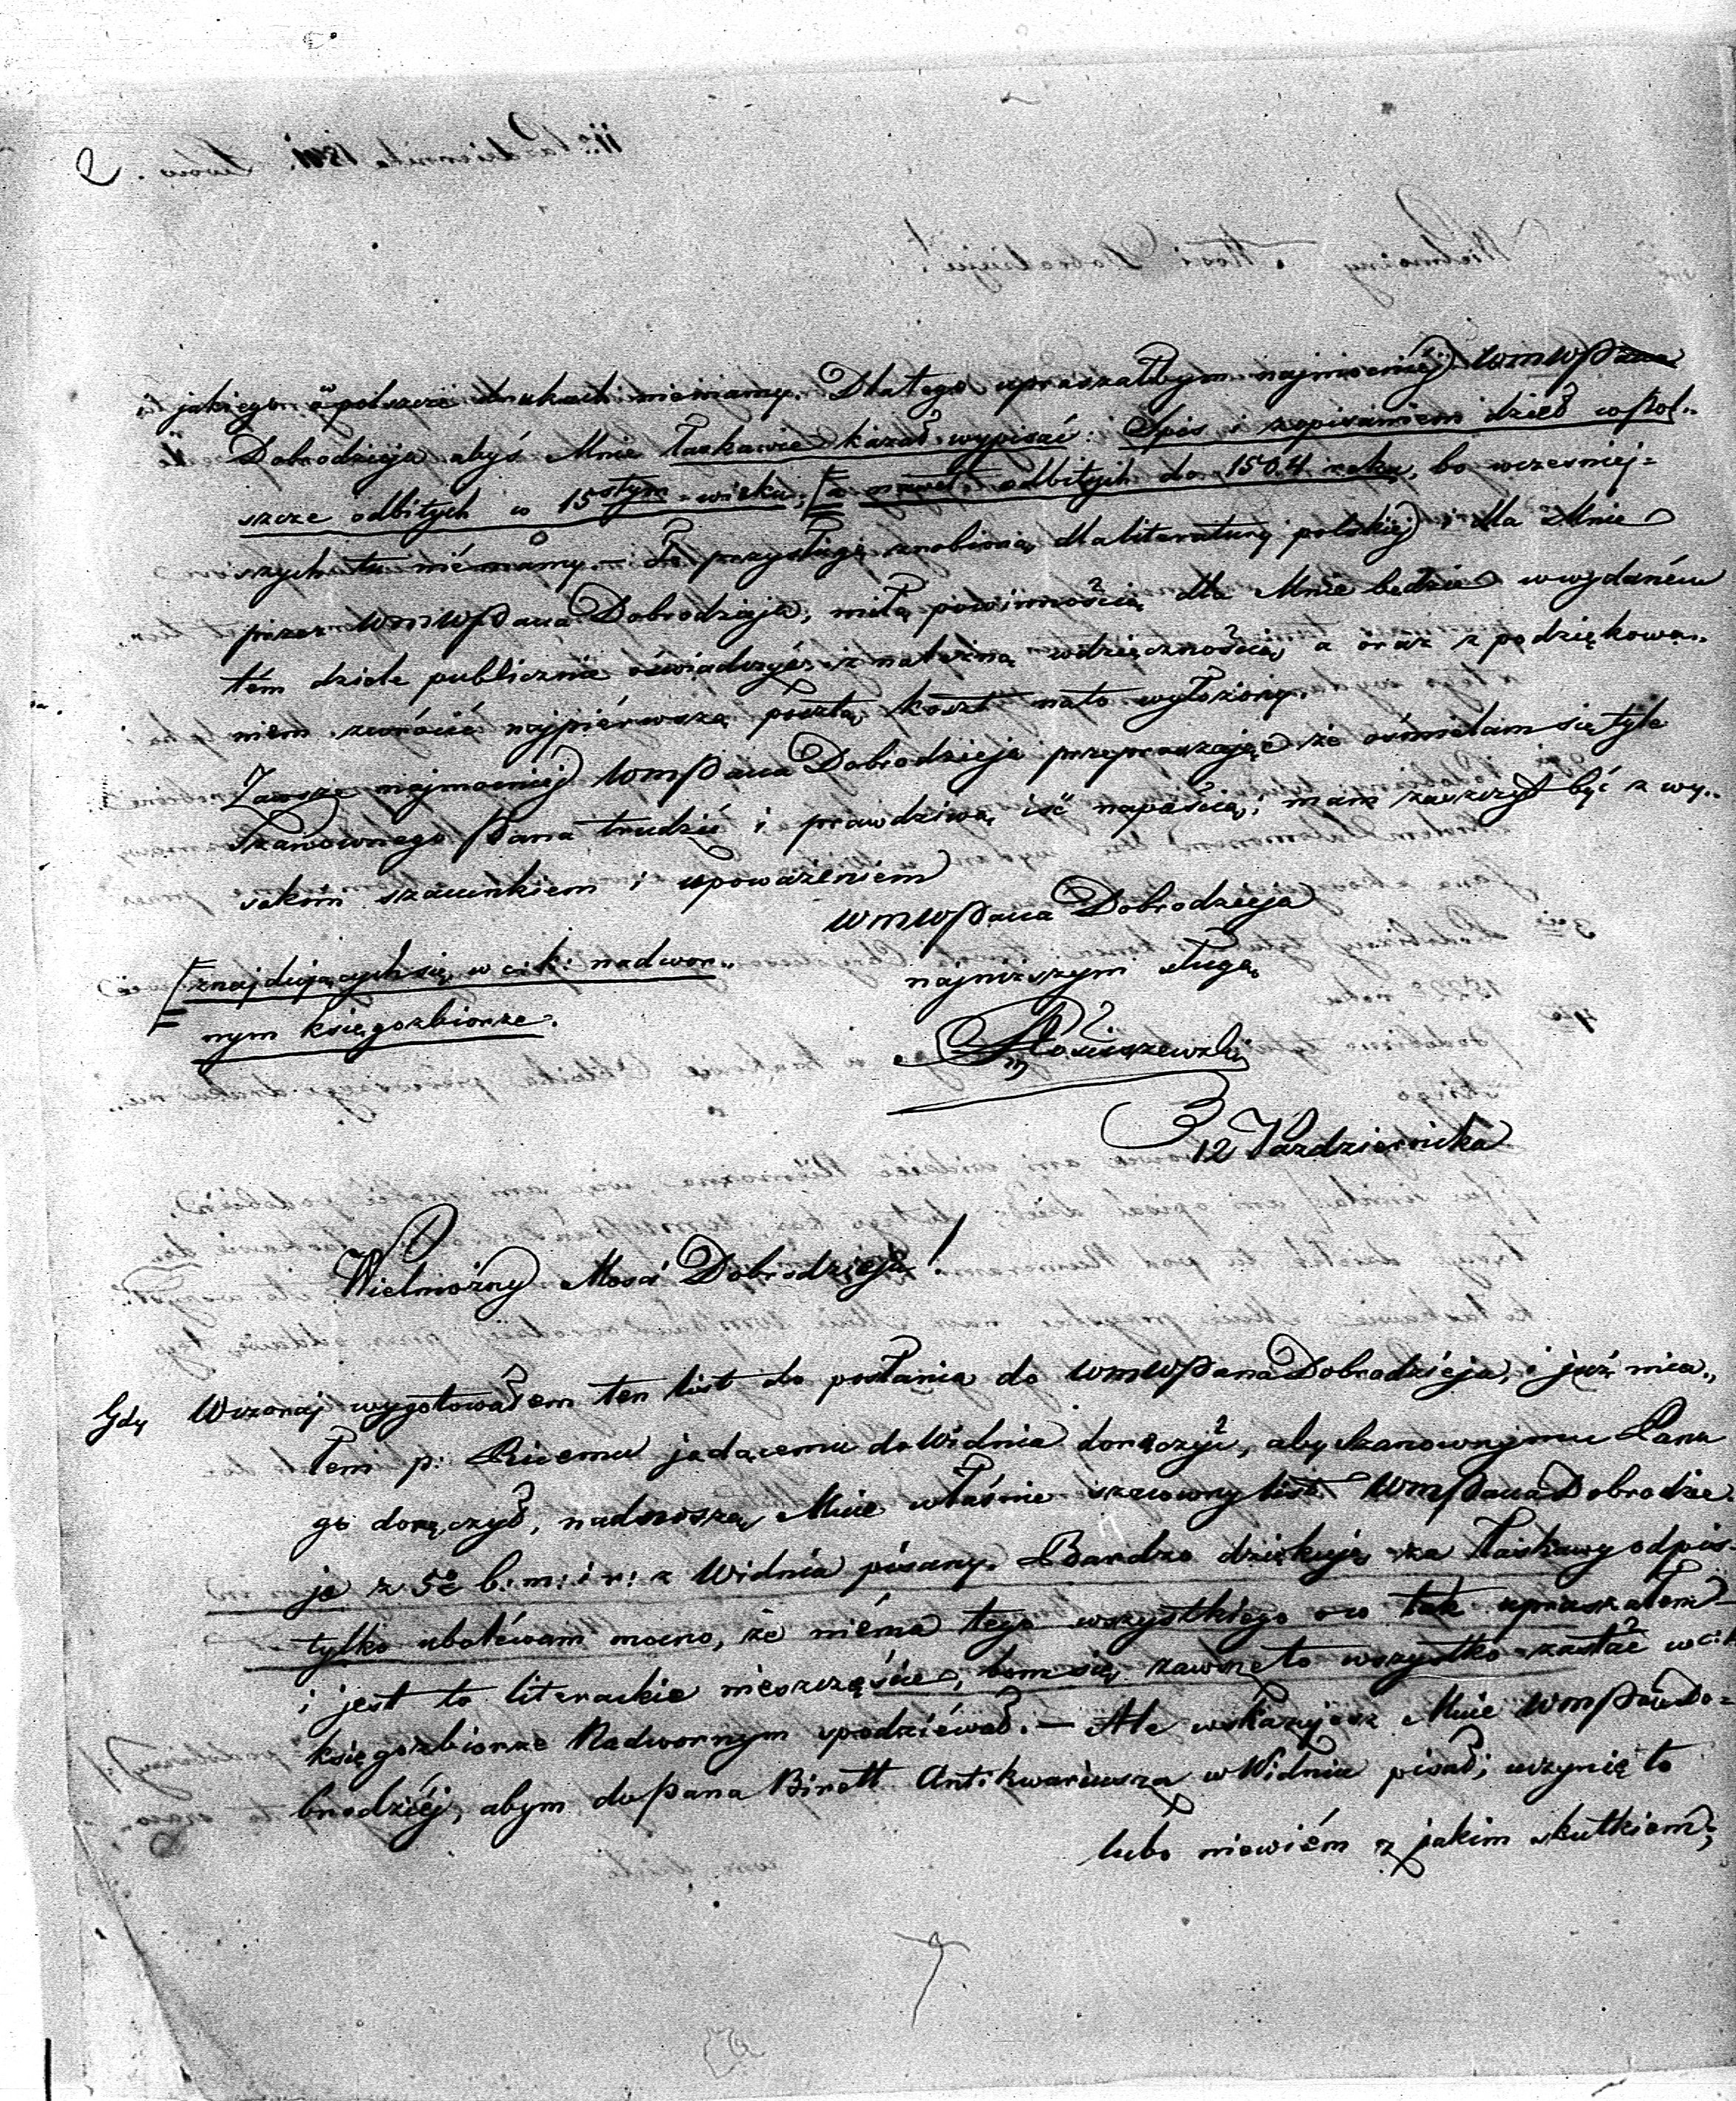 2
jakiego o w polszcze drukach niemamy. Dlatego upraszałbym najmocniéj WmWPana
Dobrodzieja abyś Mnie łaskawie kazał wypisać: Spis i z opisaniem dzieł w Pol-
szcze odbitych w 15stym = wieku; a nawet odbitych do 1504 roku, bo wczesniej=
szych tu niémamy. — Tę przysługę zrobioną dla literatury polskiéj i dla Mnie
przez WmWPana Dobrodzieja, miłą powinnością dla Mnie będzie w wydaném
tém dziele publicznie oświadczyć z należną wdzięcznością, a oraz z podziękowa-
niem zwrócić najpiérwszą pocztą koszt na to wyłożony.
Zawsze najmocniéj WmPana Dobrodzieja przepraszając że ośmielam się tyle
Szanownego Pana trudzić i prawdziwą iść napaścią; mam zaszczyt być z wy-
sokim szacunkiem i upoważeniem
WmWPana Dobrodzieja
najniższym sługą
Rościszewski
znajdujących się w c: k: nadwor-
nym księgozbiorze.
12 Pazdziernika
Wielmożny Mości Dobrodzieju!
Gdy Wczoraj wygotowałem ten list do posłania do WmWPana Dobrodzieja, i już mia-
łem p: jadącemu do Widnia doręczyć, aby Szanownymu Panu
go doręczył, nadnoszą Mnie właśnie szanowny list WmPana Dobrodzie
ja z 5o b: m: i r: z Widnia pisany. Bardzo dziękuję za łaskawy odpis
tylko uboléwam mocno, że niéma tego wszystkiego o co tak upraszałem
i jest to literackie nieszczęście, bom się zawsze to wszystko zastać w c: k
księgozbiorze Nadwornym spodziéwał. — Ale wskazujesz Mnie WmPan Do=
brodziéj, abym do Pana Birett Antikwariusza w Widniu pisał; uczynię to
lubo niewiém z jakim skutkiem;